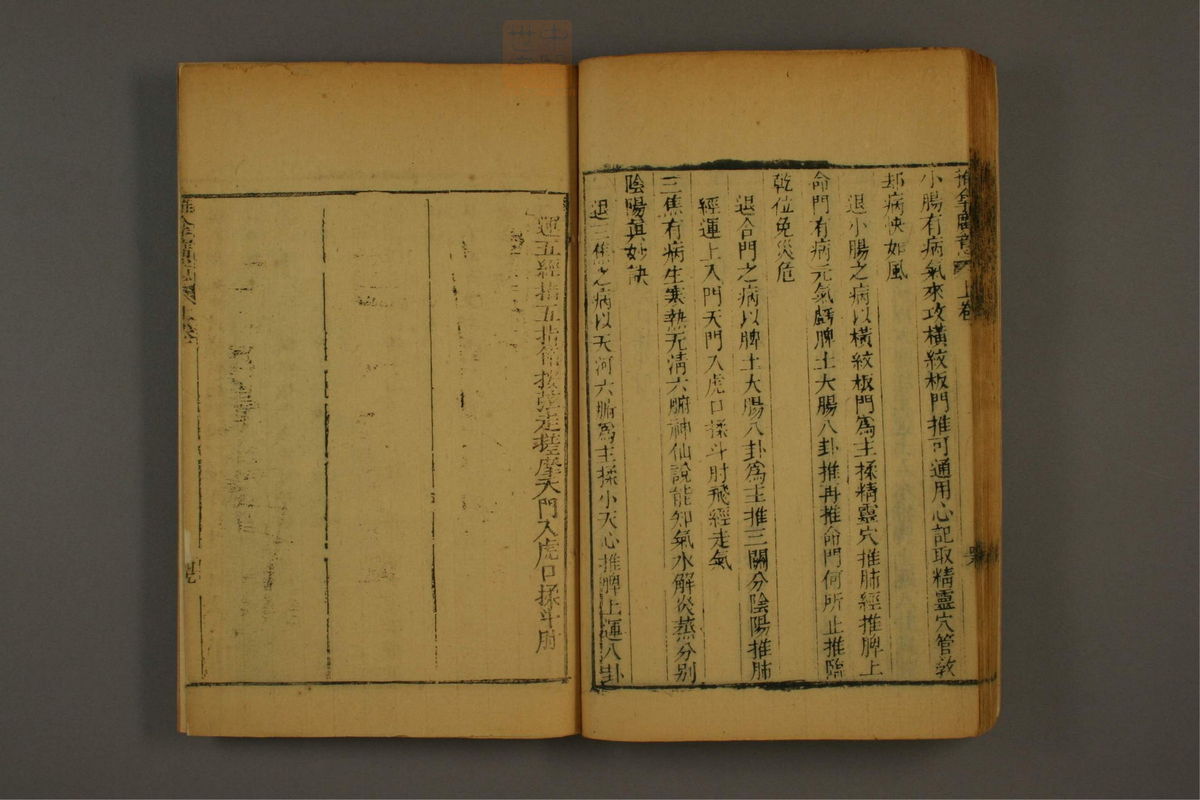 推拿 上卷
小腸有病氣來攻橫紋板門推可通用心記取精靈穴管教
却病快如風
退小腸之病以橫紋板門為主揉精靈穴推肺經推脾土
命門有病元氣虧脾土大腸八卦推再推命門何所止推臨
乾位免災危
退合門之病以脾土大腸八卦為主推三關分陰陽推肺
經運上入門天門入虎口揉斗肘飛經走氣
三焦有病生寒熱无清六腑神仙說能知氣水解炎蒸分別
陰陽真妙訣
退三焦之病以天河六腑為主揉小天心推脾土運八卦
運五經掐五指節按弦走搓摩天門入虎口揉斗肘